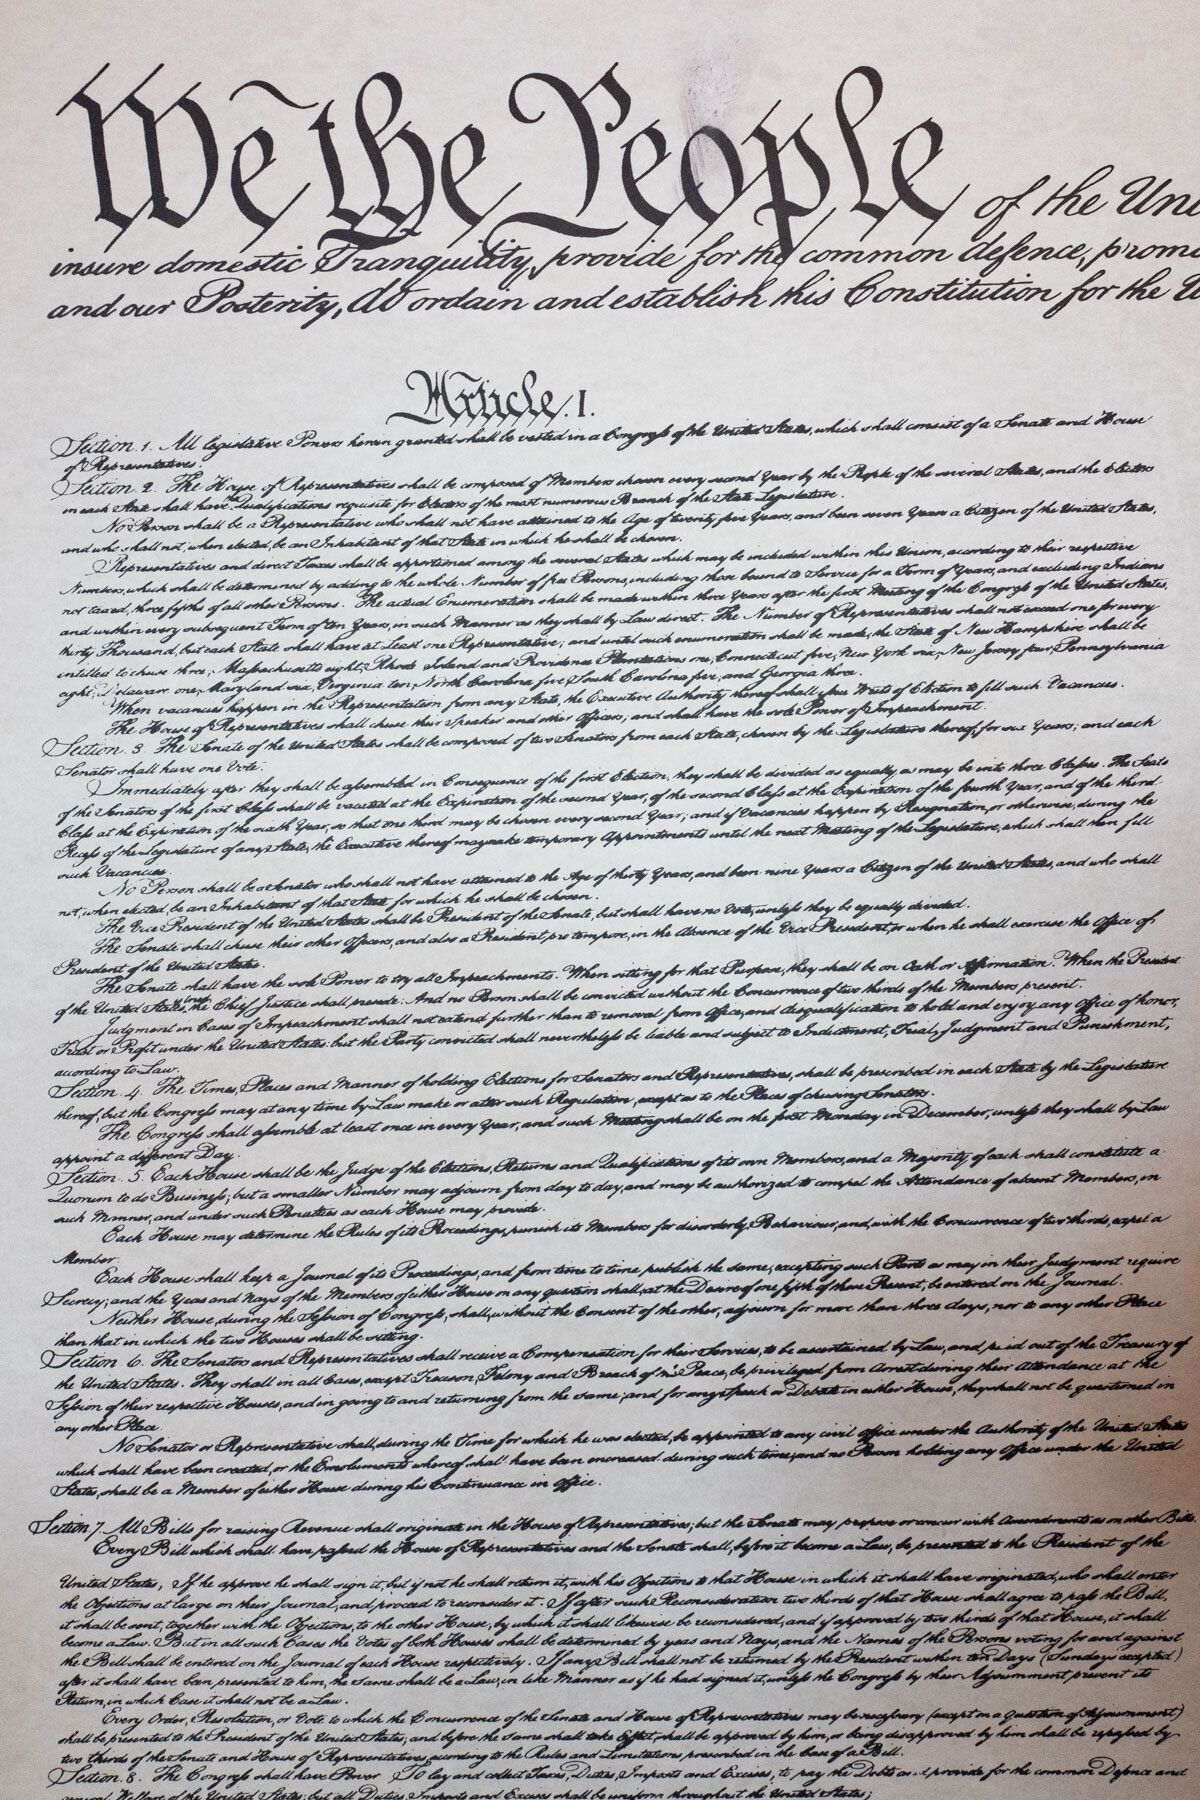 We the People of the Uni
insure domestic Tranquility, provide for the common defence, promo
and our Posterity, do ordain and establish this Constitution for the U
Article. I.
Section. 1. All legislative Powers herein granted shall be vested in a Congress of the United States, which shall consist of a Senate and House
of Representatives.
Section. 2. The House of Representatives shall be composed of Members chosen every second Year by the People of the several States, and the Electors
in each State shall have the Qualifications requisite for Electors of the most numerous Branch of the State Legislature.
No Person shall be a Representative who shall not have attained to the Age of twenty five Years, and been seven Years a Citizen of the United States,
and who shall not, when elected, be an Inhabitant of that State in which he shall be chosen.
Representatives and direct Taxes shall be apportioned among the several States which may be included within this Union, according to their respective
Numbers, which shall be determined by adding to the whole Number of free Persons, including those bound to Service for a Term of Years, and excluding Indians
not taxed, three fifths of all other Persons. The actual Enumeration shall be made within three Years after the first Meeting of the Congress of the United States,
and within every subsequent Term of ten Years, in such Manner as they shall by Law direct. The Number of Representatives shall not exceed one for every
thirty Thousand, but each State shall have at Least one Representative; and until such enumeration shall be made, the State of New Hampshire shall be
entitled to chuse three, Massachusetts eight, Rhode Island and Providence Plantations one, Connecticut five, New York six, New Jersey four, Pennsylvania
eight, Delaware one, Maryland six, Virginia ten, North Carolina five, South Carolina five, and Georgia three.
When vacancies happen in the Representation from any State, the Executive Authority thereof shall issue Writs of Election to fill such Vacancies.
The House of Representatives shall chuse their Speaker and other Officers; and shall have the sole Power of Impeachment.
Section. 3 The Senate of the United States shall be composed of two Senators from each State, chosen by the Legislature thereof, for six Years; and each
Senator shall have one Vote.
Immediately after they shall be assembled in Consequence of the first Election, they shall be divided as equally as may be into three Classes. The Seats
of the Senators of the first Class shall be vacated at the Expiration of the second Year, of the second Class at the Expiration of the fourth Year, and of the third
Class at the Expiration of the sixth Year, so that one third may be chosen every second Year; and if Vacancies happen by Resignation, or otherwise, during the
Recess of the Legislature of any State, the Executive thereof may make temporary Appointments until the next Meeting of the Legislature, which shall then fill
such Vacancies.
No Person shall be a Senator who shall not have attained to the Age of thirty Years, and been nine Years a Citizen of the United States, and who shall
not, when elected, be an Inhabitant of that State for which he shall be chosen.
The Vice President of the United States shall be President of the Senate, but shall have no Vote, unless they be equally divided.
The Senate shall chuse their other Officers, and also a President pro tempore, in the Absence of the Vice President, or when he shall exercise the Office of
President of the United States.
The Senate shall have the sole Power to try all Impeachments. When sitting for that Purpose, they shall be on Oath or Affirmation. When the President
of the United States is tried, the Chief Justice shall preside: And no Person shall be convicted without the Concurrence of two thirds of the Members present.
Judgment in Cases of Impeachment shall not extend further than to removal from Office, and disqualification to hold and enjoy any Office of honor,
Trust or Profit under the United States: but the Party convicted shall nevertheless be liable and subject to Indictment, Trial, Judgment and Punishment,
according to Law.
Section. 4. The Times, Places and Manner of holding Elections for Senators and Representatives, shall be prescribed in each State by the Legislature
thereof; but the Congress may at any time by Law make or alter such Regulation, except as to the Places of chusing Senators.
The Congress shall assemble at least once in every Year, and such Meeting shall be on the first Monday in December, unless they shall by Law
appoint a different Day.
Section. 5. Each House shall be the Judge of the Elections, Returns and Qualifications of its own Members, and a Majority of each shall constitute a
Quorum to do Business; but a smaller Number may adjourn from day to day, and may be authorized to compel the Attendance of absent Members, in
such Manner, and under such Penalties as each House may provide.
Each House may determine the Rules of its Proceedings, punish its Members for disorderly Behaviour, and, with the Concurrence of two thirds, expel a
Member.
Each House shall keep a Journal of its Proceedings, and from time to time publish the same, excepting such Parts as may in their Judgment require
Secrecy; and the Yeas and Nays of the Members of either House on any question shall, at the Desire of one fifth of those Present, be entered on the Journal.
Neither House, during the Session of Congress, shall, without the Consent of the other, adjourn for more than three days, nor to any other Place
than that in which the two Houses shall be sitting.
Section 6. The Senators and Representatives shall receive a Compensation for their Services, to be ascertained by Law, and paid out of the Treasury of
the United States. They shall in all Cases, except Treason, Felony and Breach of the Peace, be privileged from Arrest during their Attendance at the
Session of their respective Houses, and in going to and returning from the same; and for any Speech or Debate in either House, they shall not be questioned in
any other Place.
No Senator or Representative shall, during the Time for which he was elected, be appointed to any civil office under the Authority of the United States
which shall have been created, or the Emoluments whereof shall have been increased during such time; and no Person holding any Office under the United
States, shall be a Member of either House during his Continuance in Office.
Section 7. All Bills for raising Revenue shall originate in the House of Representatives; but the Senate may propose or concur with Amendments as on other Bills.
Every Bill which shall have passed the House of Representatives and the Senate shall, before it become a Law, be presented to the President of the
United States, If he approve he shall sign it, but if not he shall return it, with his Objections to that House in which it shall have originated, who shall enter
the Objections at large on their Journal, and proceed to reconsider it. If after such Reconsideration two thirds of that House shall agree to pass the Bill,
it shall be sent, together with the Objections, to the other House, by which it shall likewise be reconsidered, and if approved by two thirds of that House, it shall
become a Law. But in all such Cases the Votes of both Houses shall be determined by yeas and Nays, and the Names of the Persons voting for and against
the Bill shall be entered on the Journal of each House respectively. If any Bill shall not be returned by the President within ten Days (Sundays excepted)
after it shall have been presented to him, the Same shall be a Law, in like Manner as if he had signed it, unless the Congress by their Adjournment prevent its
Return, in which Case it shall not be a Law.
Every Order, Resolution, or Vote to which the Concurrence of the Senate and House of Representatives may be necessary (except on a question of Adjournment)
shall be presented to the President of the United States; and before the Same shall take Effect, shall be approved by him, or being disapproved by him shall be repassed by
two thirds of the Senate and House of Representatives, according to the Rules and Limitations prescribed in the Case of a Bill.
Section. 8. The Congress shall have Power To lay and collect Taxes, Duties, Imposts and Excises, to pay the Debts and provide for the common Defence and
general Welfare of the United States; but all Duties, Imposts and Excises shall be uniform throughout the United States;